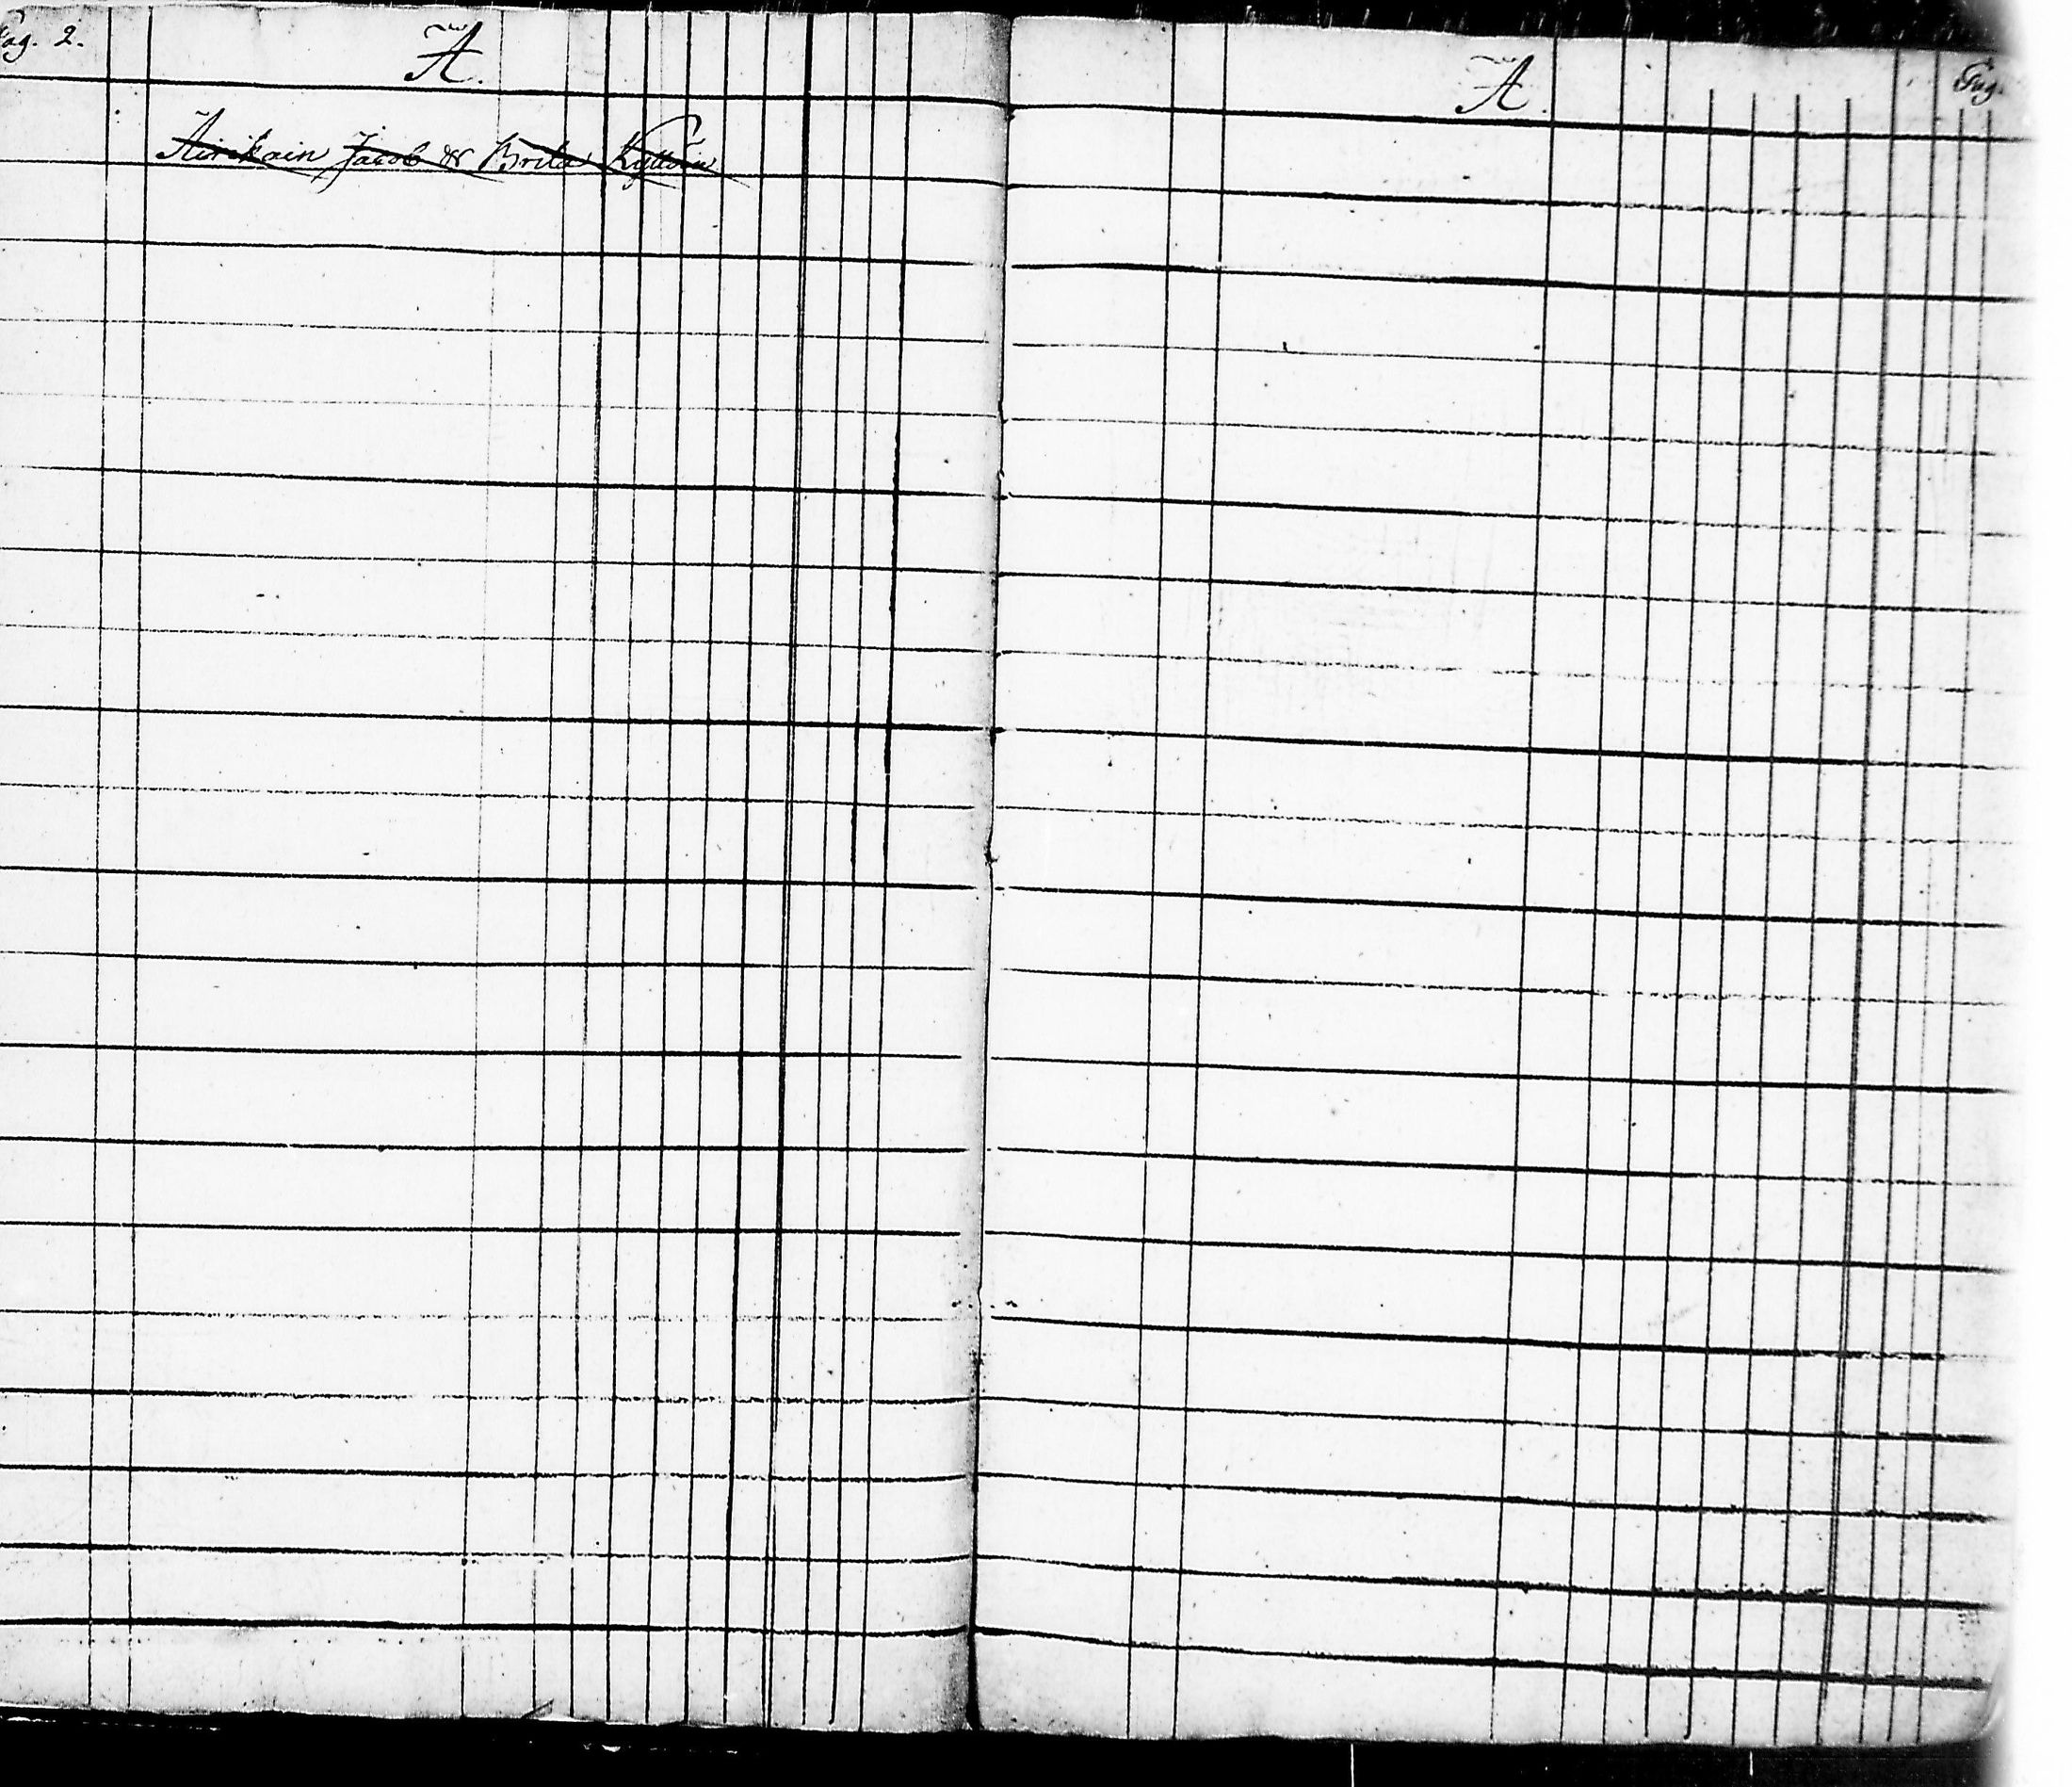 Pag. 2.
A.
Airikain Jacob & Brita Kyllöin
A.
Pag.